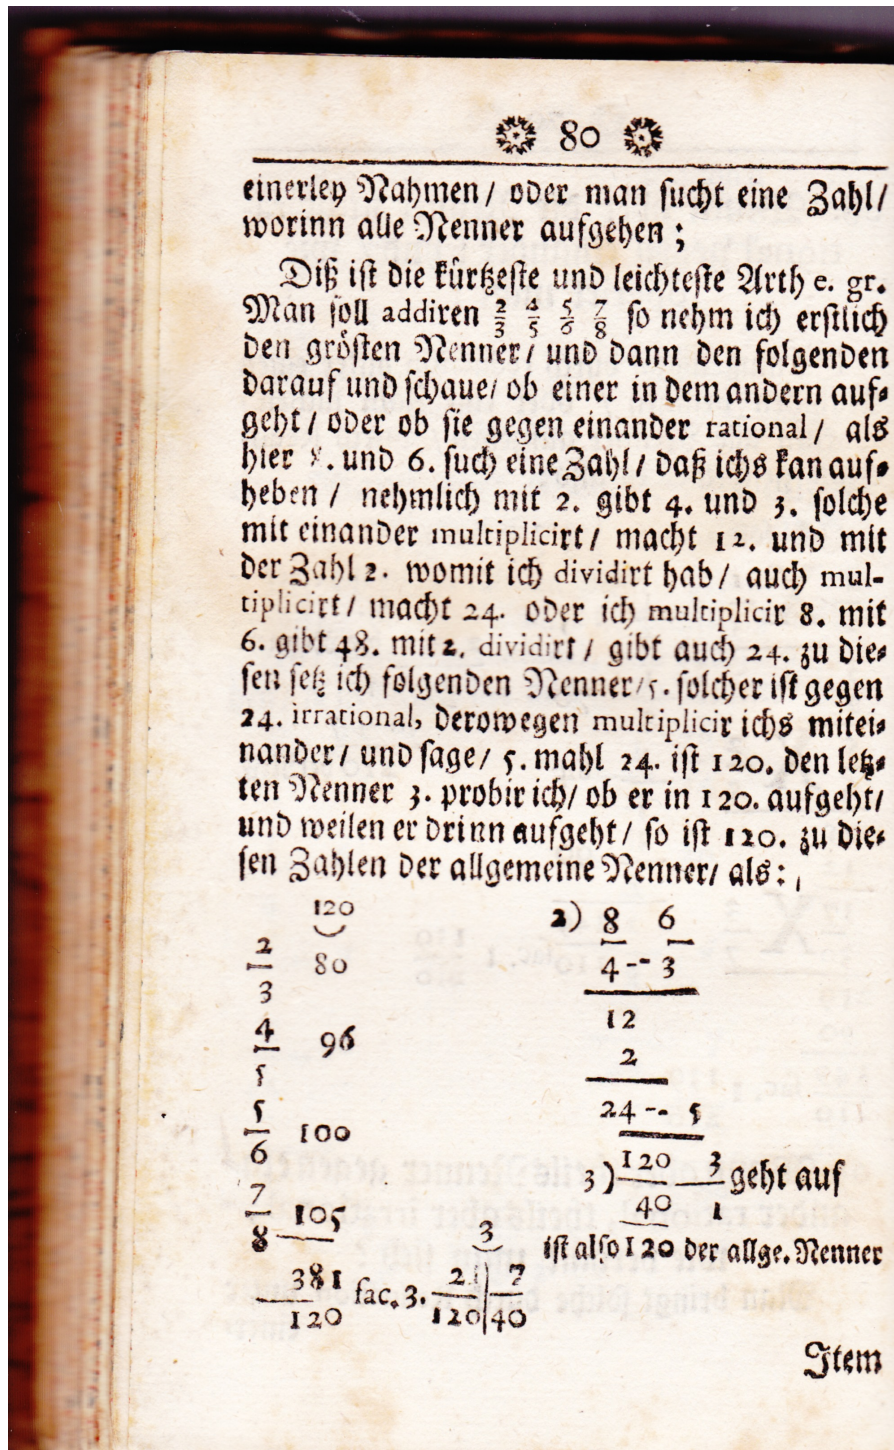 80
einerley Nahmen / oder man sucht eine Zahl /
worinn alle Nenner aufgehen ;
Diß ist die kürtzeste und leichteste Arth e. gr.
Man soll addiren 2/3 4/5 5/6 7/8 so nehm ich erstlich
den grösten Nenner / und dann den folgenden
darauf und schaue / ob einer in dem andern auf-
geht / oder ob sie gegen einander rational / als
hier 8. und 6. such eine Zahl / daß ichs kan auf-
heben / nehmlich mit 2. gibt 4. und 3. solche
mit einander multiplicirt / macht 12. und mit
der Zahl 2. womit ich dividirt hab / auch mul-
tiplicirt / macht 24. oder ich multiplicir 8. mit
6. gibt 48. mit 2. dividirt / gibt auch 24. zu die-
sen setz ich folgenden Nenner / 5. solcher ist gegen
24. irrational, derowegen multiplicir ichs mitei-
nander / und sage / 5. mahl 24. ist 120. den letz-
ten Nenner 3. probir ich / ob er in 120. aufgeht /
und weilen er drinn aufgeht / so ist 120. zu die-
sen Zahlen der allgemeine Nenner / als :
120
2/3 80
4/5 96
5/6 100
7/8 105
381/120 fac. 3. 21/120 | 7/40
3
2) 8 6
4 -- 3
12
2
24 -- 5
3) 120 3 geht auf
40 1
ist also 120 der allge. Nenner
Item